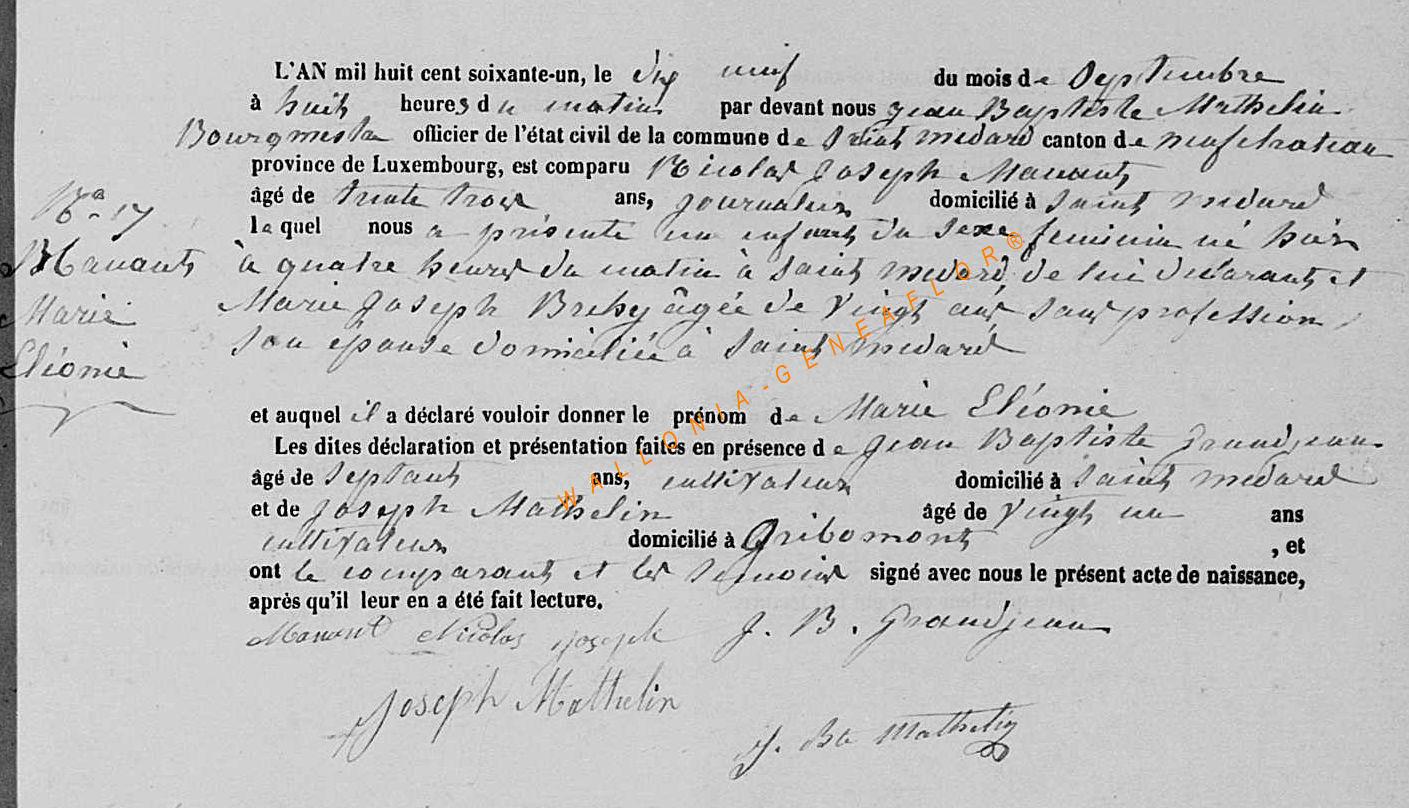 L'AN mil huit cent soixante-un, le dix neuf du mois de Septembre
à huit heures du matin par devant nous Jean Baptiste Mathelin
Bourgmestre officier de l'état civil de la commune de Saint medard canton de neufchateau
province de Luxembourg, est comparu Nicolas Joseph Manant
âgé de trente trois ans, journalier domicilié à Saint medard
lequel nous a présenté un enfant du sexe feminin né hier
à quatre heures du matin à Saint medard de lui declarant et
Marie Joseph âgée de Vingt ans sans profession
son épouse domiciliée à Saint medard
N° 17
Manant
Marie
Eléonie
et auquel il a déclaré vouloir donner le prénom de Marie Eléonie
Les dites déclaration et présentation faites en présence de Jean Baptiste Grandjean
âgé de Septant ans, cultivateur domicilié à Saint medard
et de Joseph Mathelin âgé de Vingt un ans
cultivateur domicilié à Gribomont , et
ont le comparant et les temoins signé avec nous le présent acte de naissance,
après qu'il leur en a été fait lecture.
Manant Nicolas Joseph J. B. Grandjean
Joseph Mathelin
J. Bte Mathelin
WALLONIA-GENEAFLOR®